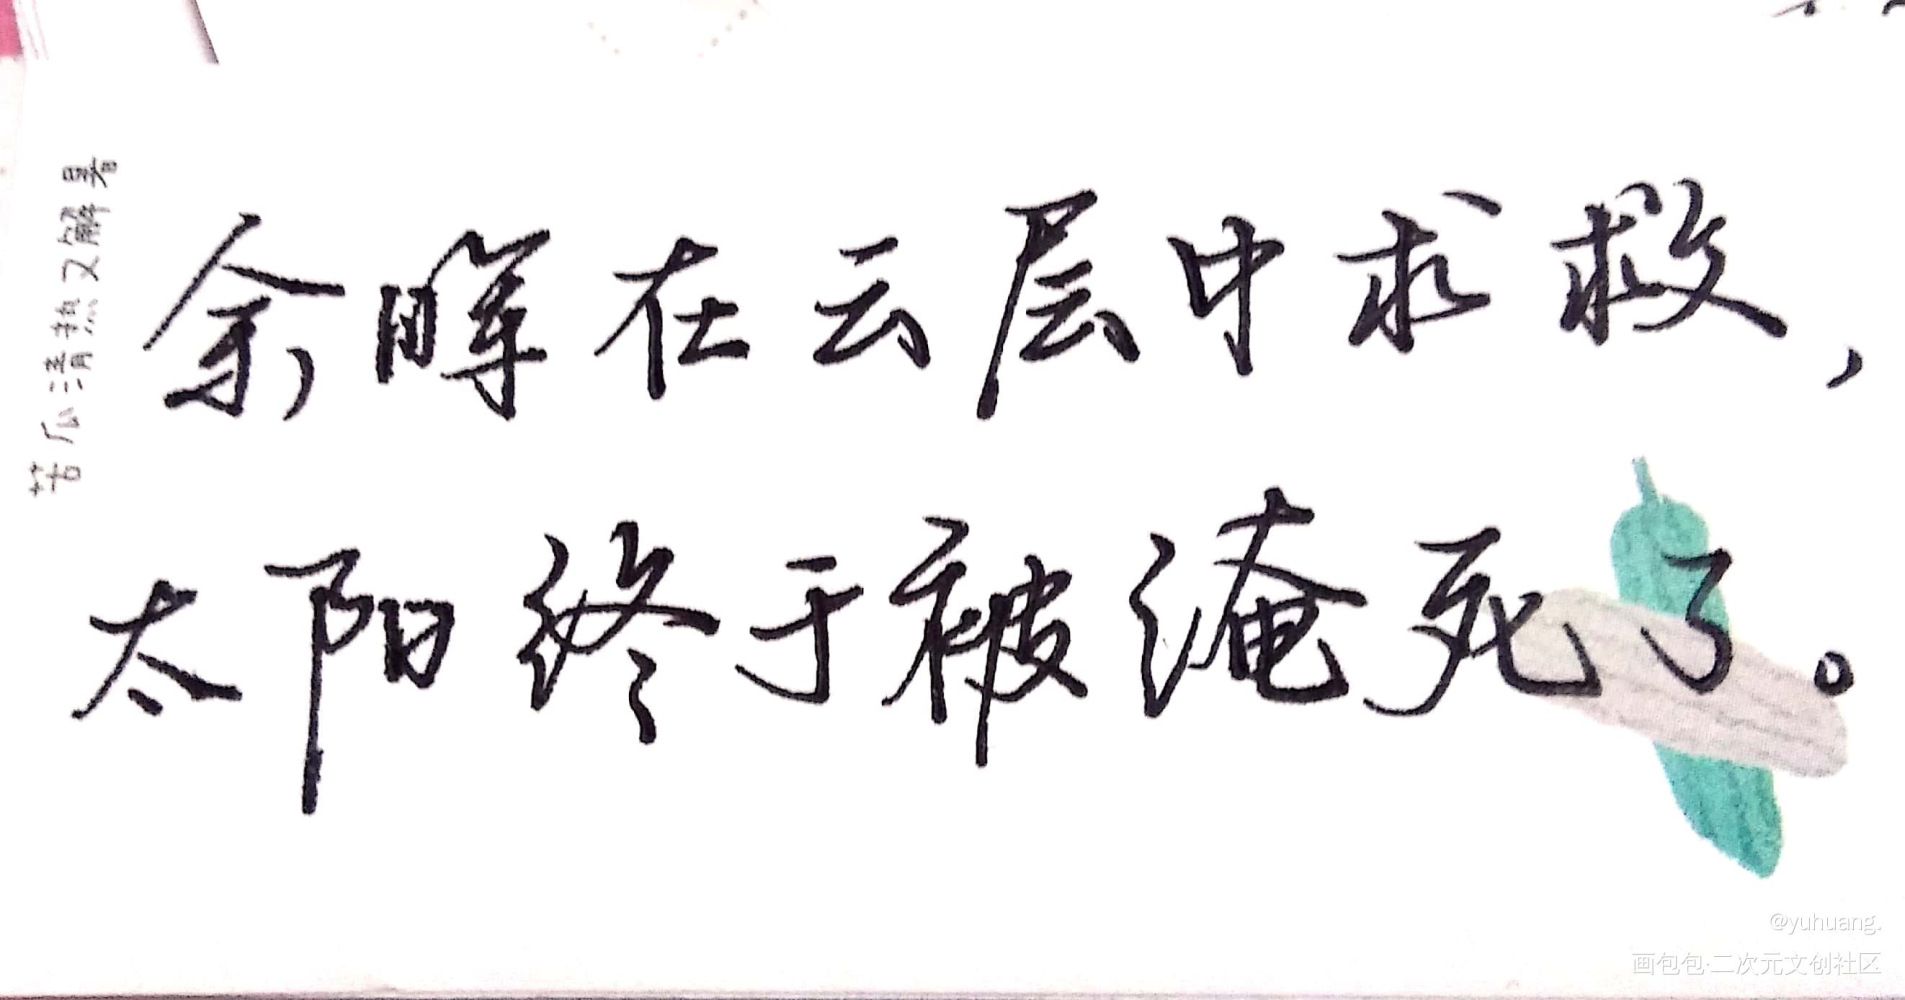 苦瓜清热又解暑
余晖在云层中求救，
太阳终于被淹死了。
@yuhuang.
画包包·二次元文创社区